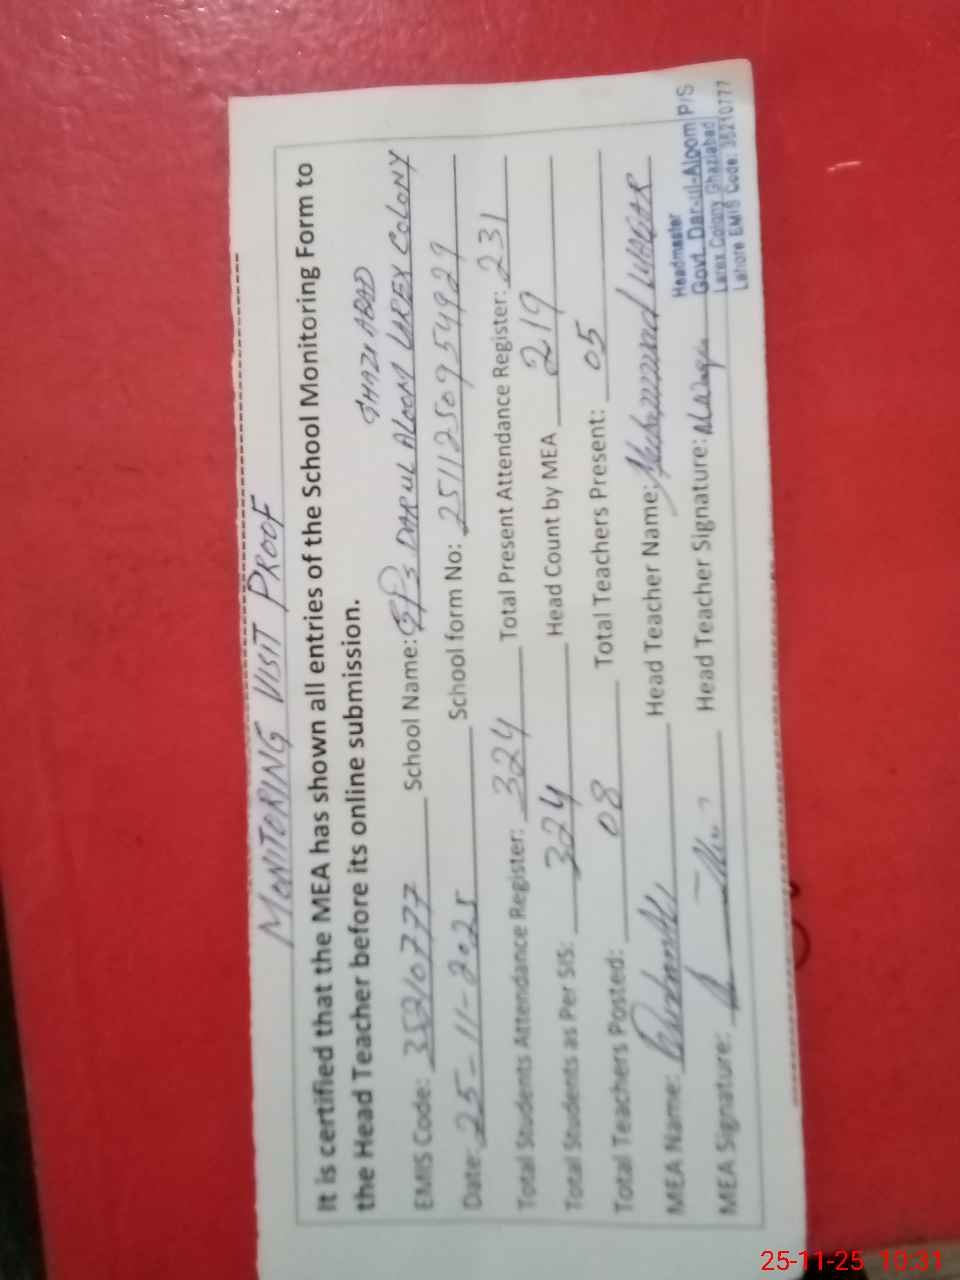 MONITORING VISIT PROOF
It is certified that the MEA has shown all entries of the School Monitoring Form to
the Head Teacher before its online submission.
GHAZI ABAD
EMIS Code: 35210777 School Name: GPS DARUL ALOOM LAREX COLONY
Date: 25-11-2025 School form No: 2511250954929
Total Students Attendance Register: 324 Total Present Attendance Register: 231
Total Students as Per SIS: 324 Head Count by MEA 219
Total Teachers Posted: 08 Total Teachers Present: 05
MEA Name: Head Teacher Name: Muhammad WAQAR
MEA Signature: Head Teacher Signature: M.Waqar
Headmaster
Govt. Dar-ul-Aloom P/S
Larex Colony Ghaziabad
Lahore EMIS Code: 35210777
25-11-25 10:31